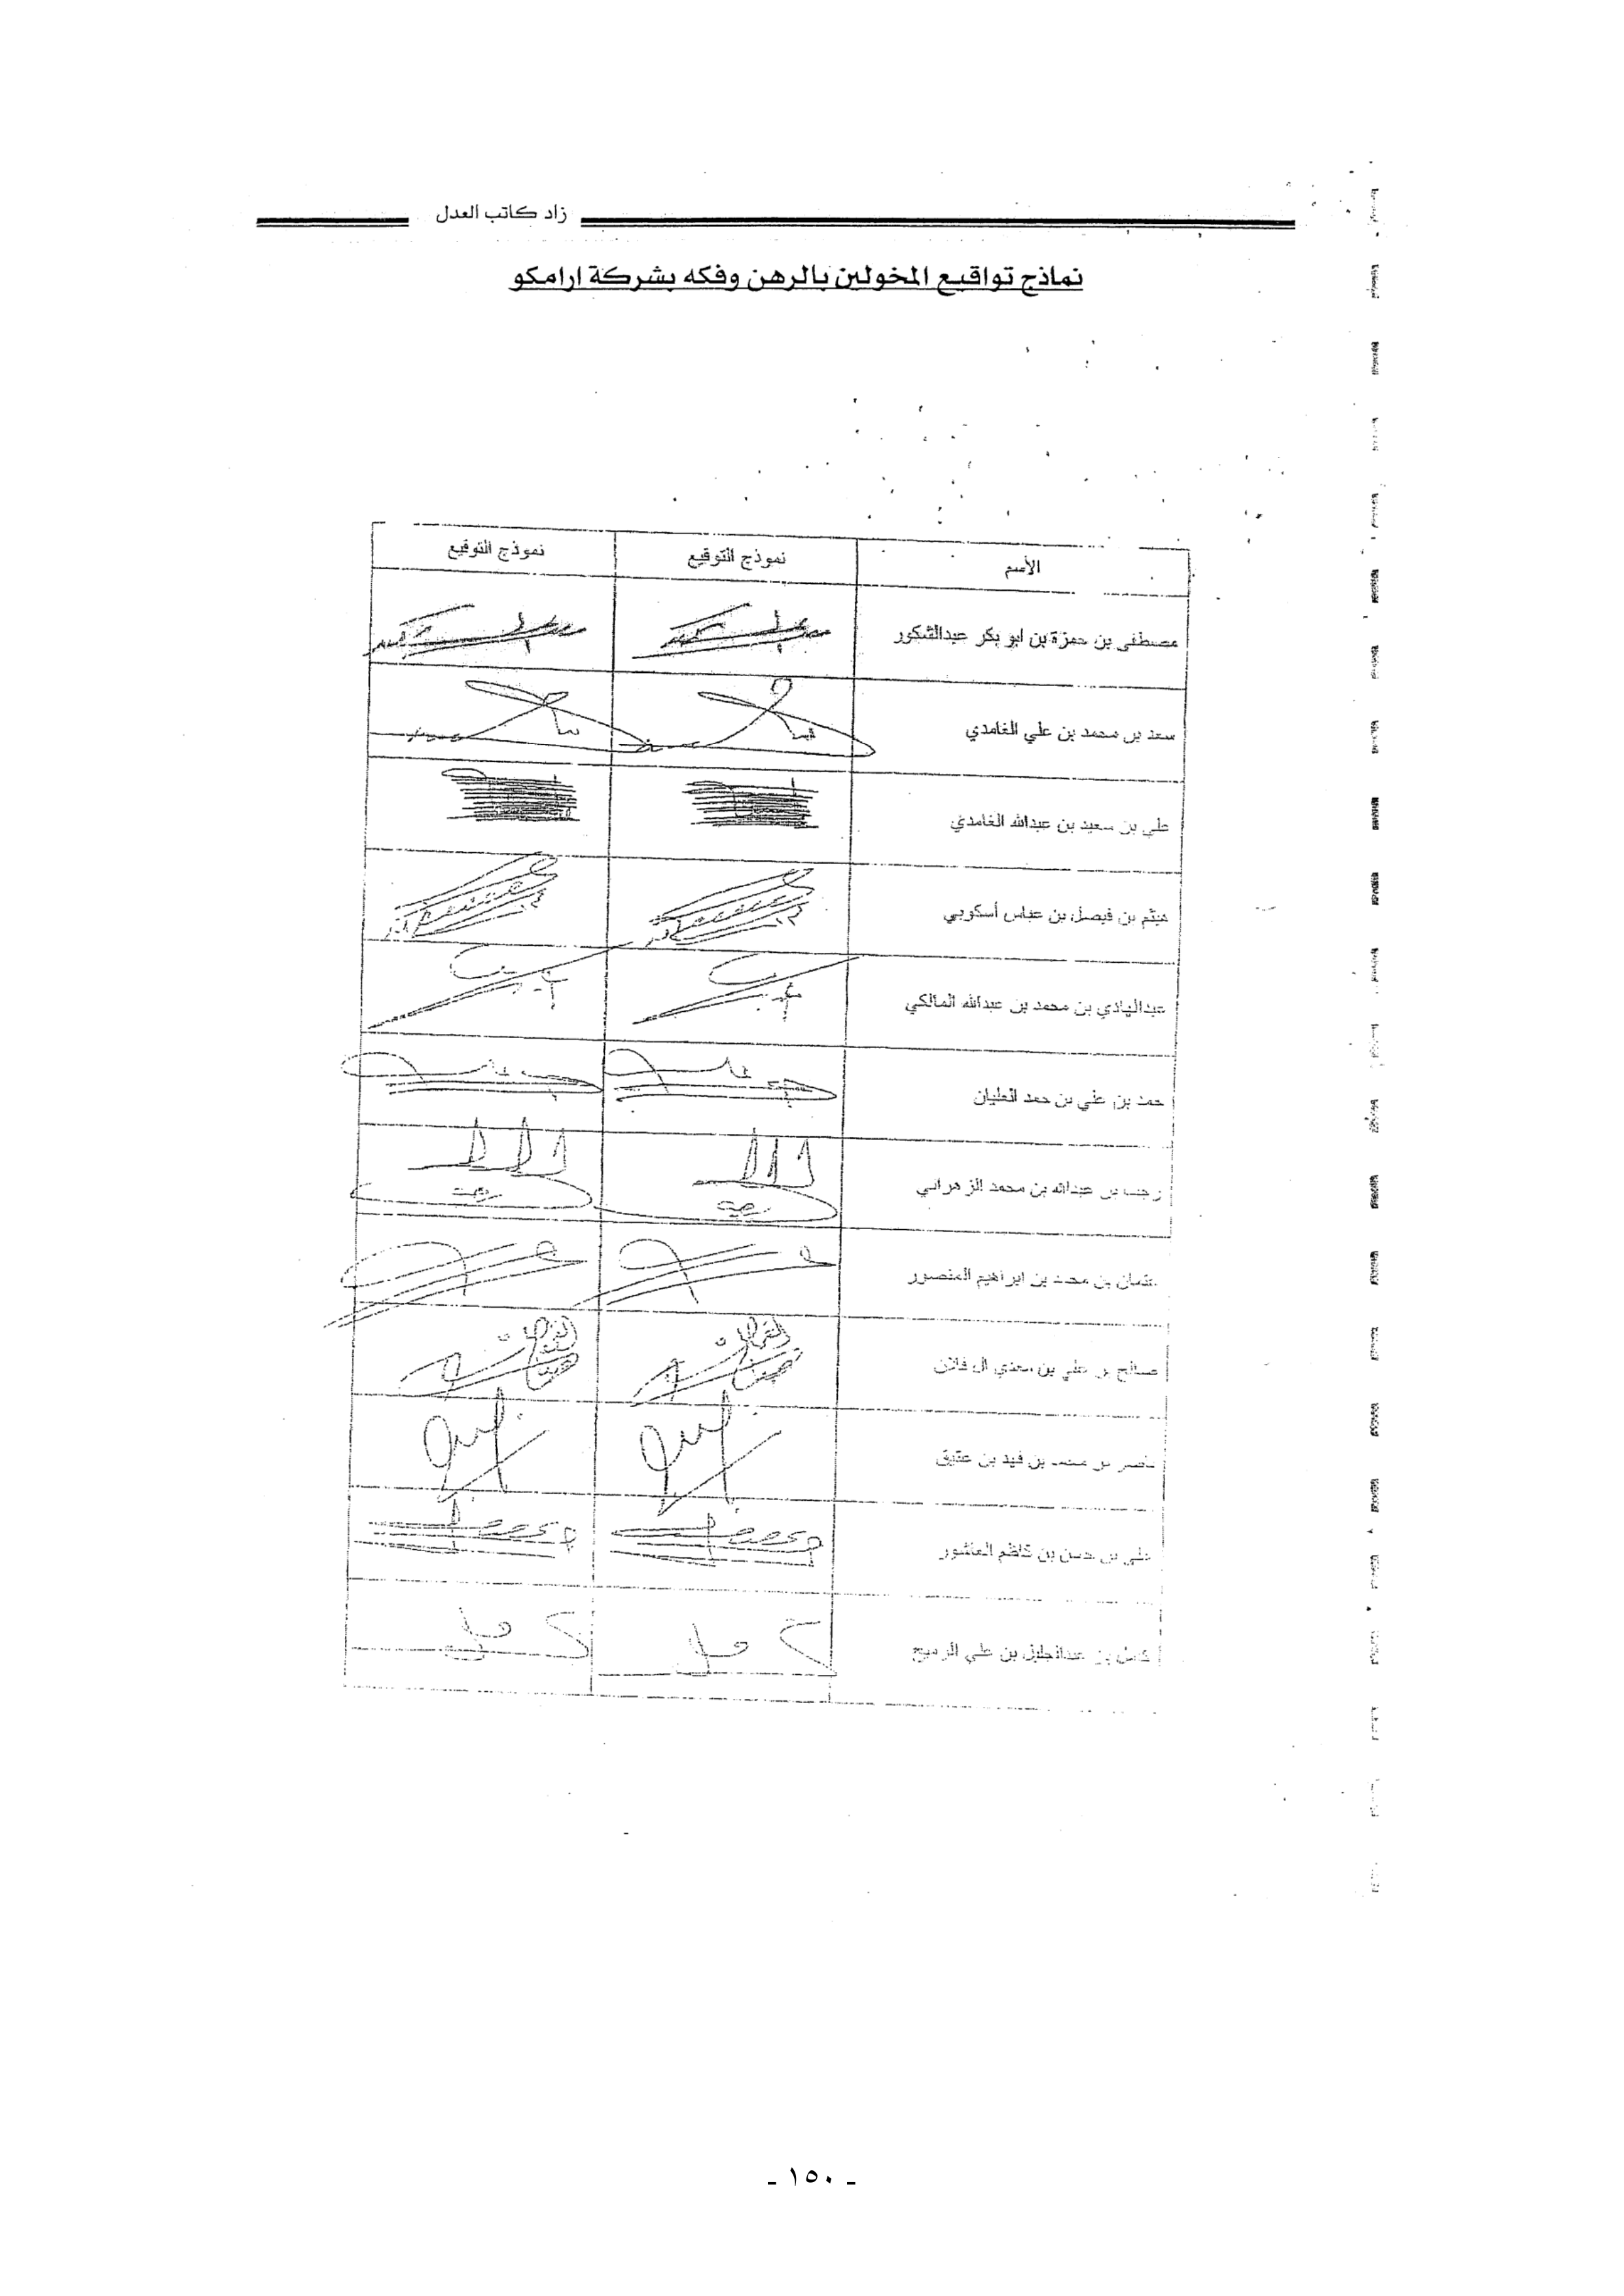 زاد كاتب العدل
نماذج تواقيع المخولين بالرهن وفكه بشركة ارامكو
الأسم نموذج التوقيع نموذج التوقيع
مصطفى بن حمزة بن ابو بكر عبدالشكور
سعد بن محمد بن علي الغامدي
علي بن سعيد بن عبدالله الغامدي
هيثم بن فيصل بن عباس أسكوبي
عبدالهادي بن محمد بن عبدالله المالكي
حمد بن علي بن حمد العليان
رجب بن عبدالله بن محمد الزهراني
عثمان بن محمد بن ابراهيم المنصور
صالح بن علي بن سعدي ال فلان
ناصر بن محمد بن فهد بن عتيق
علي بن حسن بن كاظم العاشور
كامل بن عبدالجليل بن علي الرميح
- ١٥٠ -